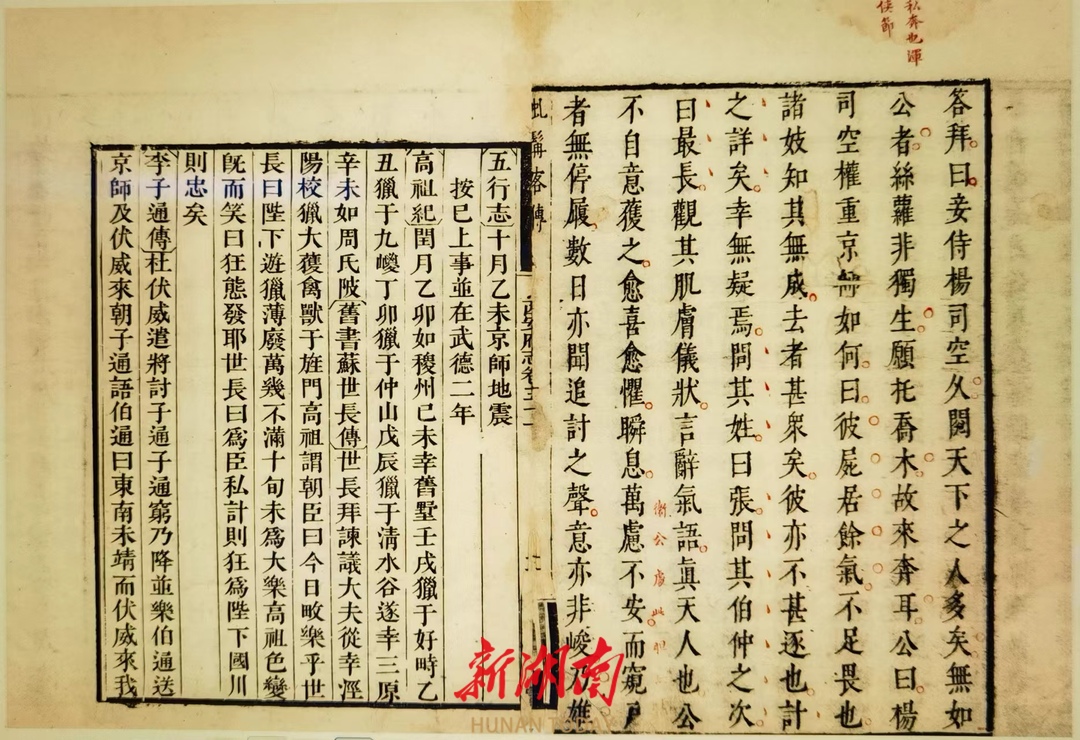 私奔也渾
侯節
答拜曰妾侍楊司空久閱天下之人多矣無如
公者絲蘿非獨生願托喬木故來奔耳公曰楊
司空權重京師如何曰彼屍居餘氣不足畏也
諸妓知其無成去者甚衆矣彼亦不甚逐也計
之詳矣幸無疑焉問其姓曰張問其伯仲之次
曰最長觀其肌膚儀狀言辭氣語眞天人也公
不自意獲之愈喜愈懼瞬息萬慮不安而窺戶
者無停履數日亦聞追討之聲意亦非峻乃雄
虬髯客傳
五行志十月乙未京師地震
按巳上事並在武德二年
高祖紀閏月乙卯如稷州己未幸舊墅壬戌獵于好畤乙
丑獵于九嵕丁卯獵于仲山戊辰獵于清水谷遂幸三原
辛未如周氏陂舊書蘇世長傳世長拜諫議大夫從幸涇
陽校獵大獲禽獸于旌門高祖謂朝臣曰今日畋樂乎世
長曰陛下遊獵薄廢萬幾不滿十旬未爲大樂高祖色變
旣而笑曰狂態發耶世長曰爲臣私計則狂爲陛下國川
則忠矣
李子通傳杜伏威遣將討子通子通窮乃降並樂伯通送
京師及伏威來朝子通語伯通曰東南未靖而伏威來我
新湖南
HUNAN TODAY